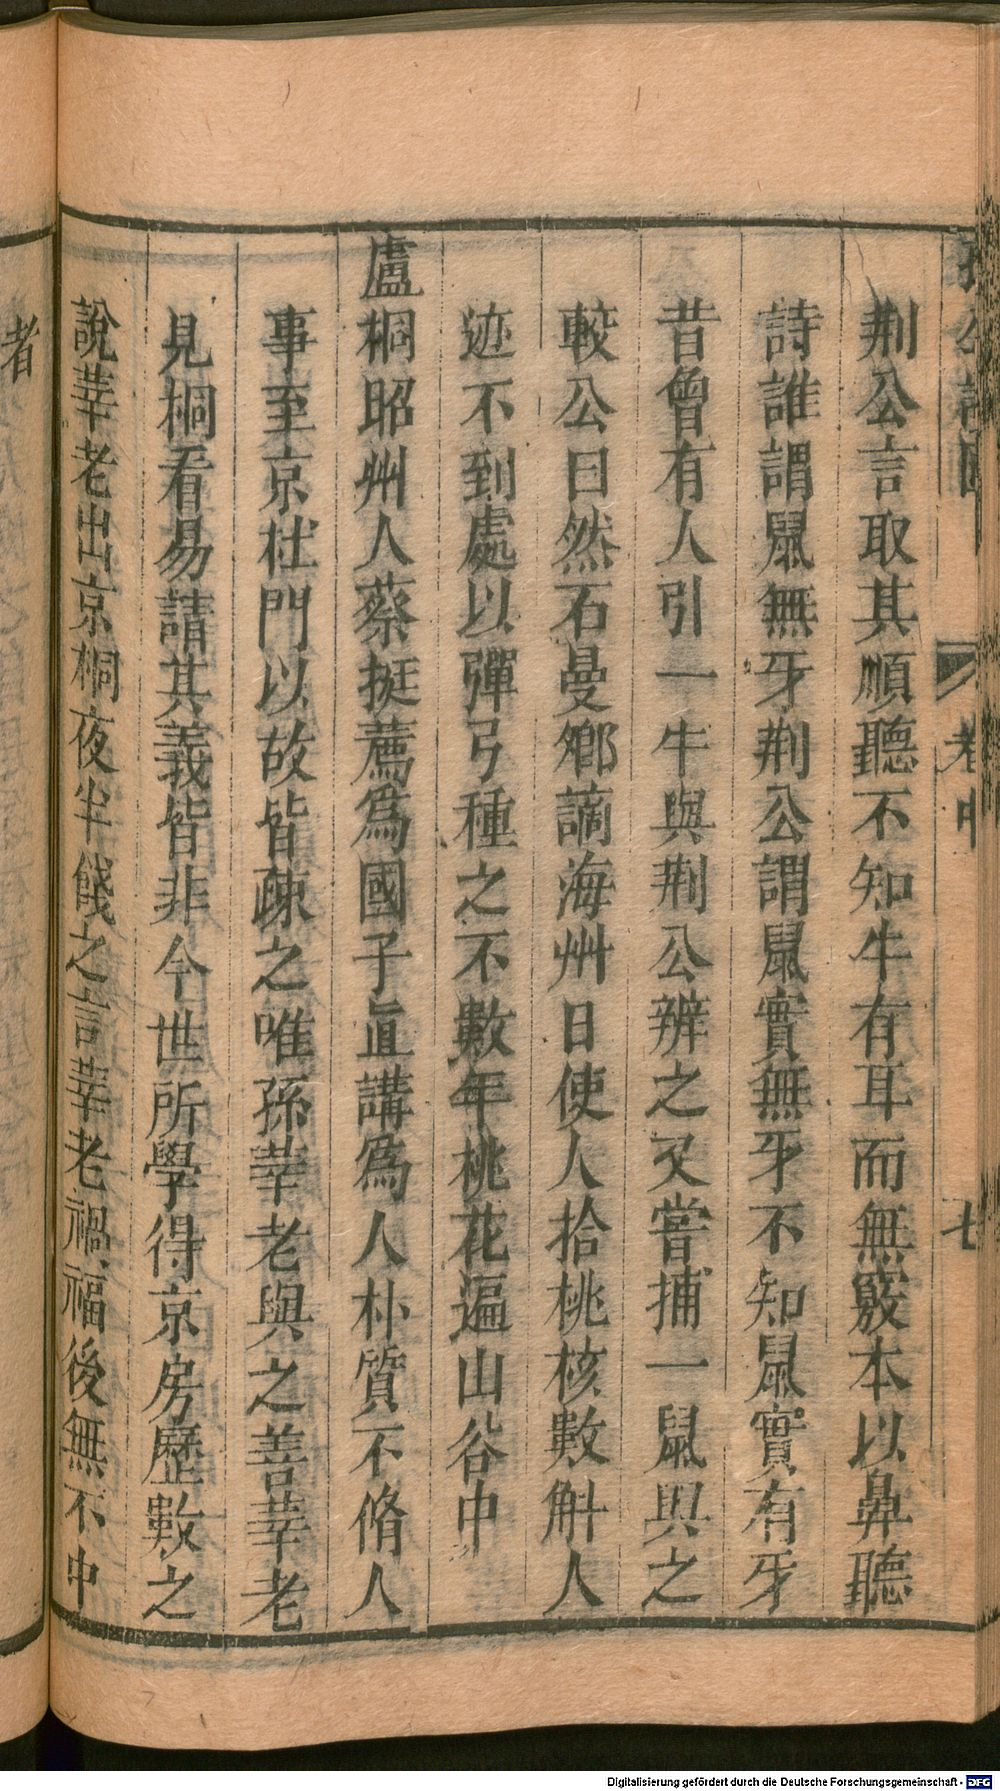 卷中
七
荆公言取其順聽不知牛有耳而無竅本以鼻聽
詩誰謂鼠無牙荆公謂鼠實無牙不知鼠實有牙
昔曾有人引一牛與荆公辨之又嘗捕一鼠與之
較公曰然石曼卿謫海州日使人拾桃核數斛人
迹不到處以彈弓種之不數年桃花遍山谷中
盧桐昭州人蔡挺薦為國子直講為人朴質不脩人
事至京杜門以故皆疎之唯孫莘老與之善莘老
見桐看易請其義皆非今世所學得京房歷數之
說莘老出京桐夜半餞之言莘老禍福後無不中
者
Digitalisierung gefördert durch die Deutsche Forschungsgemeinschaft - DFG